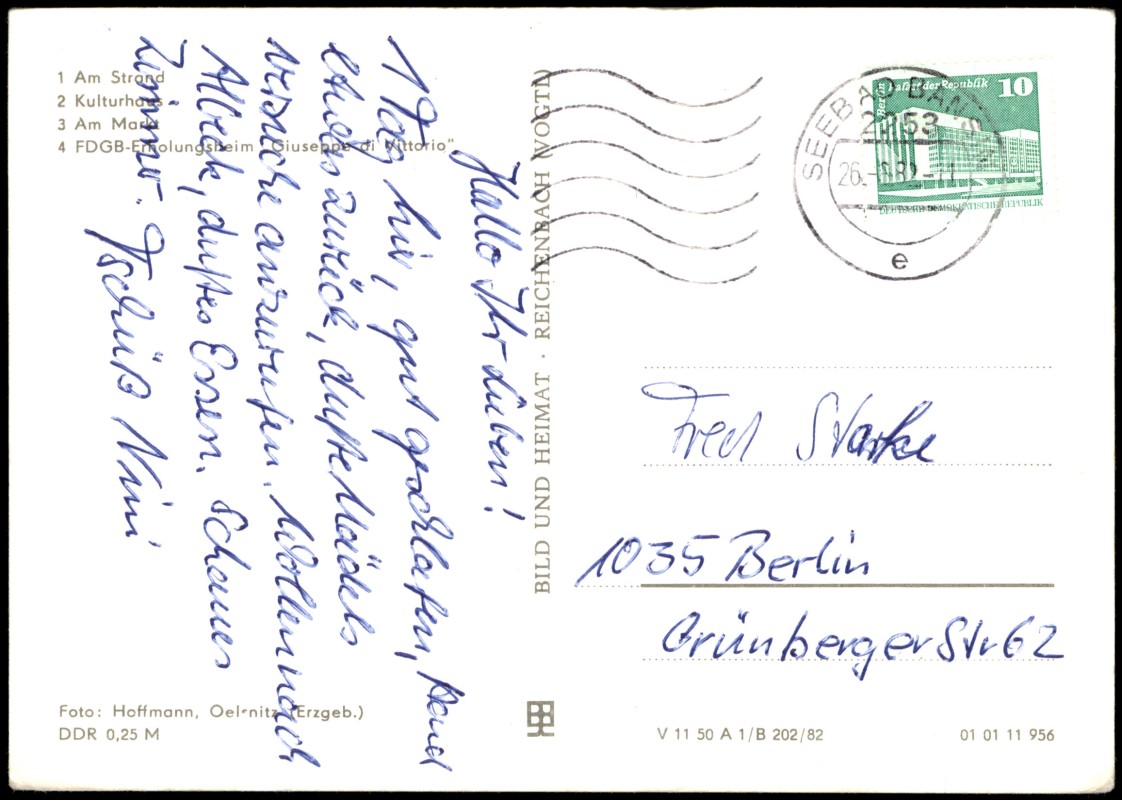 1 Am Strand
2 Kulturhaus
3 Am Markt
4 FDGB-Erholungsheim "Giuseppe di Vittorio"
Hallo Ihr Lieben!
1 Tag hier, gut geschlafen, Hand
etwas zurück, dufte Mädels
versuche anzurufen. Wollen nach
Albeck, duftes Essen. Schönes
Zimmer. Tschüß Nini
Foto: Hoffmann, Oelsnitz (Erzgeb.)
DDR 0,25 M
BILD UND HEIMAT · REICHENBACH (VOGTL)
Berlin Palast der Republik 10
DEUTSCHE DEMOKRATISCHE REPUBLIK
SEEBAD BANSIN
2253
e
Fred Starke
1035 Berlin
Grünberger Str 62
V 11 50 A 1/B 202/82
01 01 11 956